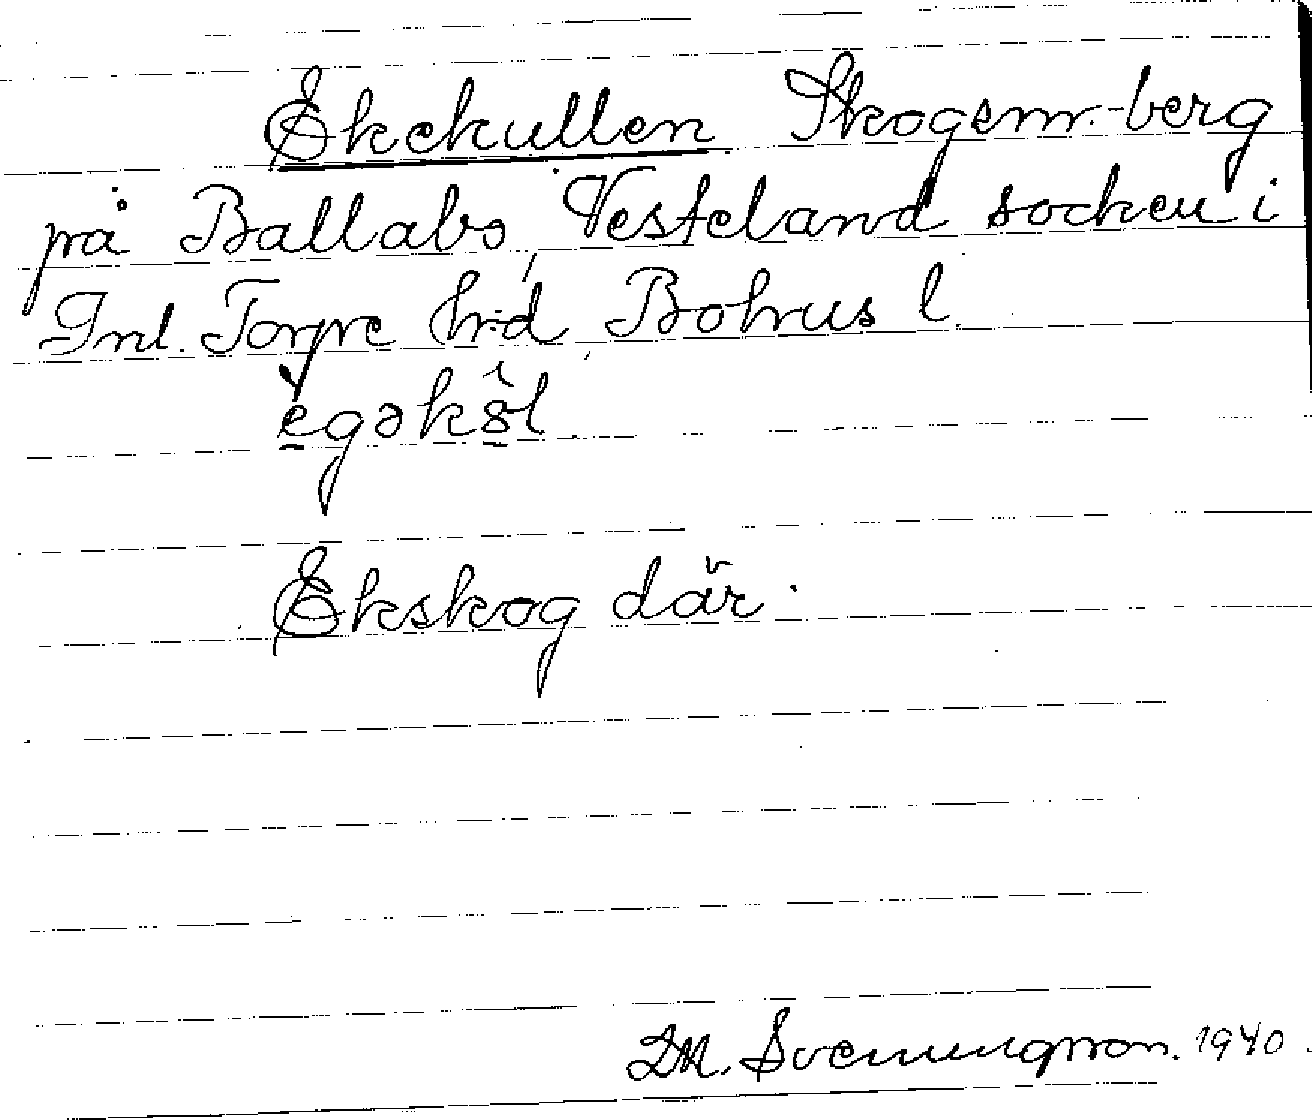 Ekekullen Skogsmr.-berg
på Ballabo, Vesteland socken i
Inl. Torpe hrd, Bohus l.
ègəkö̀l
Ekskog där.
Svenungsson. 1940.